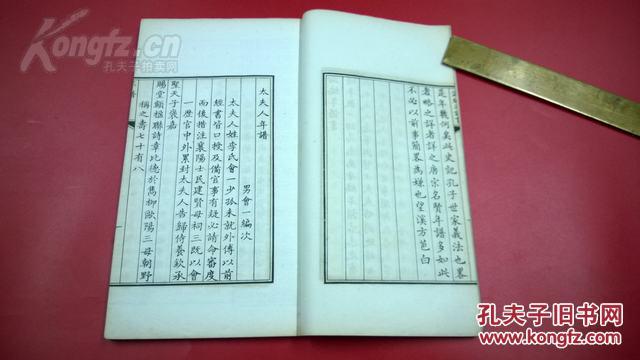 Kongfz.cn
孔夫子拍卖网
是年幾何莫此史記孔子世家義法也畧
者畧之詳者詳之唐宗名賢年譜多如此
不必以前事簡畧為嫌也望溪方苞白
太夫人年譜
男會一編次
太夫人姓李氏會一少孤未就外傅以前
經書皆口授及備官事有疑必請命審度
而後措注襄陽士民建賢母祠三既以會
一歷官中外累封太夫人告歸侍養欽承
聖天子褒嘉
賜堂額楹聯詩章比德於雋柳歐陽三母朝野
稱之壽七十有八
孔夫子旧书网
KONGFZ.COM